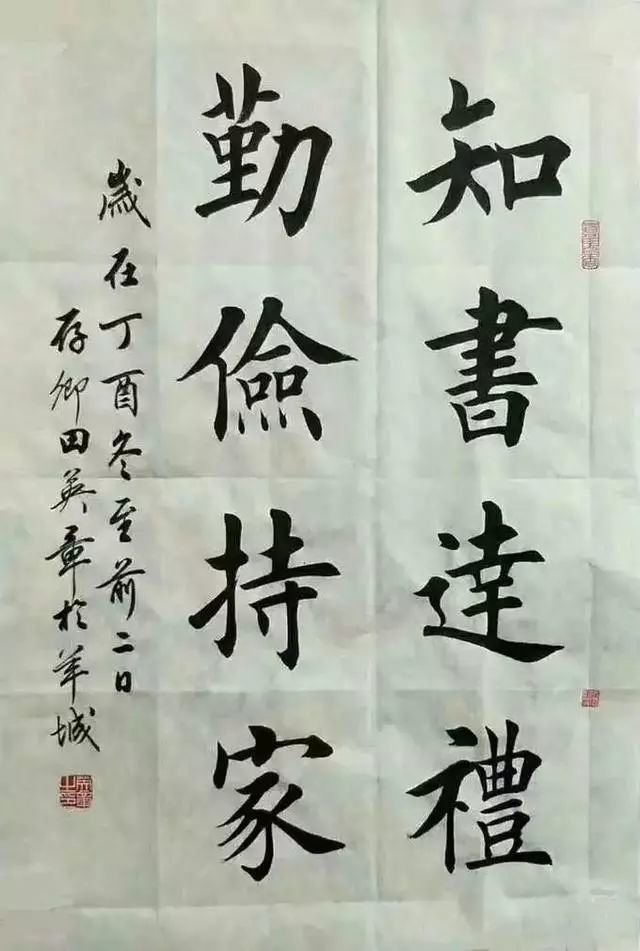 知書達禮
勤儉持家
歲在丁酉冬至前二日
存卿田英章於羊城